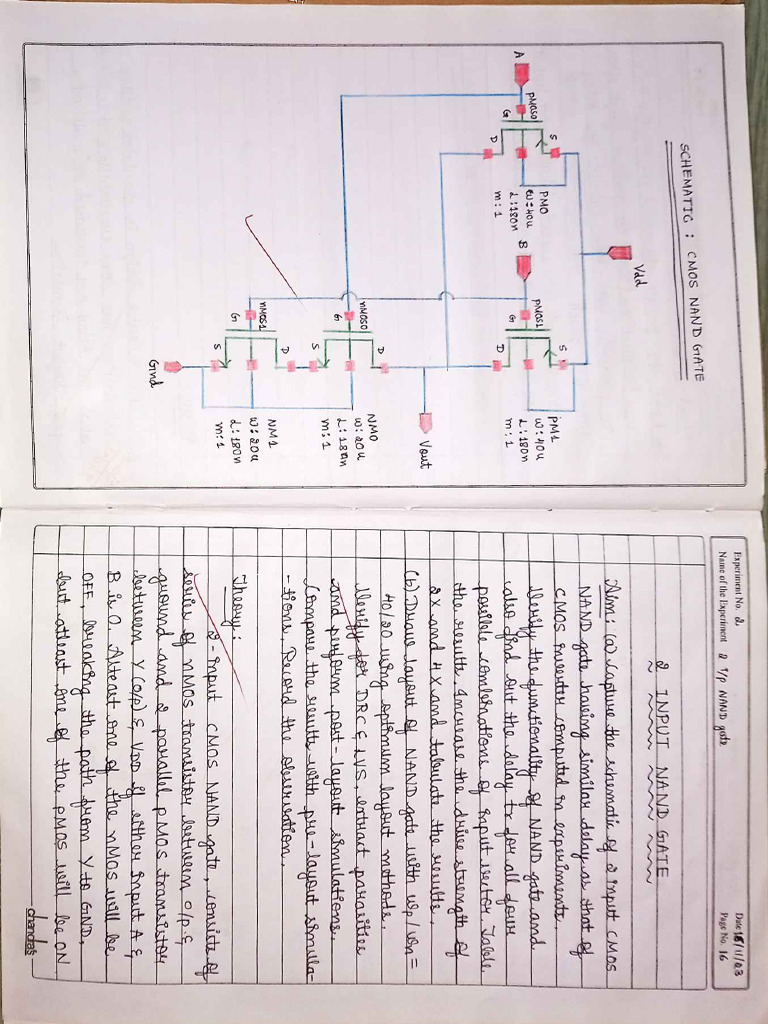 SCHEMATIC : CMOS NAND GATE
Vdd
A
PMOS0
G
S
D
PM0
W:40u
L:180n
m:1
B
PMOS1
G
S
D
PM1
W:40u
L:180n
m:1
Vout
nMOS0
G
D
S
NM0
W:20u
L:180n
m:1
nMOS1
G
D
S
NM1
W:20u
L:180n
m:1
Gnd
Experiment No. 2
Date 18/11/23
Name of the Experiment 2 I/p NAND gate
Page No. 16
2 INPUT NAND GATE
Aim: (a) Capture the schematic of 2 input CMOS
NAND gate having similar delay as that of
CMOS inverter computed in experiments.
Verify the functionality of NAND gate and
also find out the delay td for all four
possible combinations of input vector Table
the results. Increase the drive strength of
2X and 4X and tabulate the results.
(b) Draw layout of NAND gate with Wp/Wn =
40/20 using optimum layout methods.
Verify for DRC & LVS, extract parasities
and perform post-layout simulations.
Compare the results with pre-layout simula-
-tions. Record the observation.
Theory:
2-input CMOS NAND gate, consists of
series of nMOS transistor between o/p &
ground and 2 parallel pMOS transistor
between Y(o/p) & VDD if either input A &
B is 0. Atleast one of the nMOS will be
OFF, breaking the path from Y to GND.
but atleast one of the pMOS will be ON